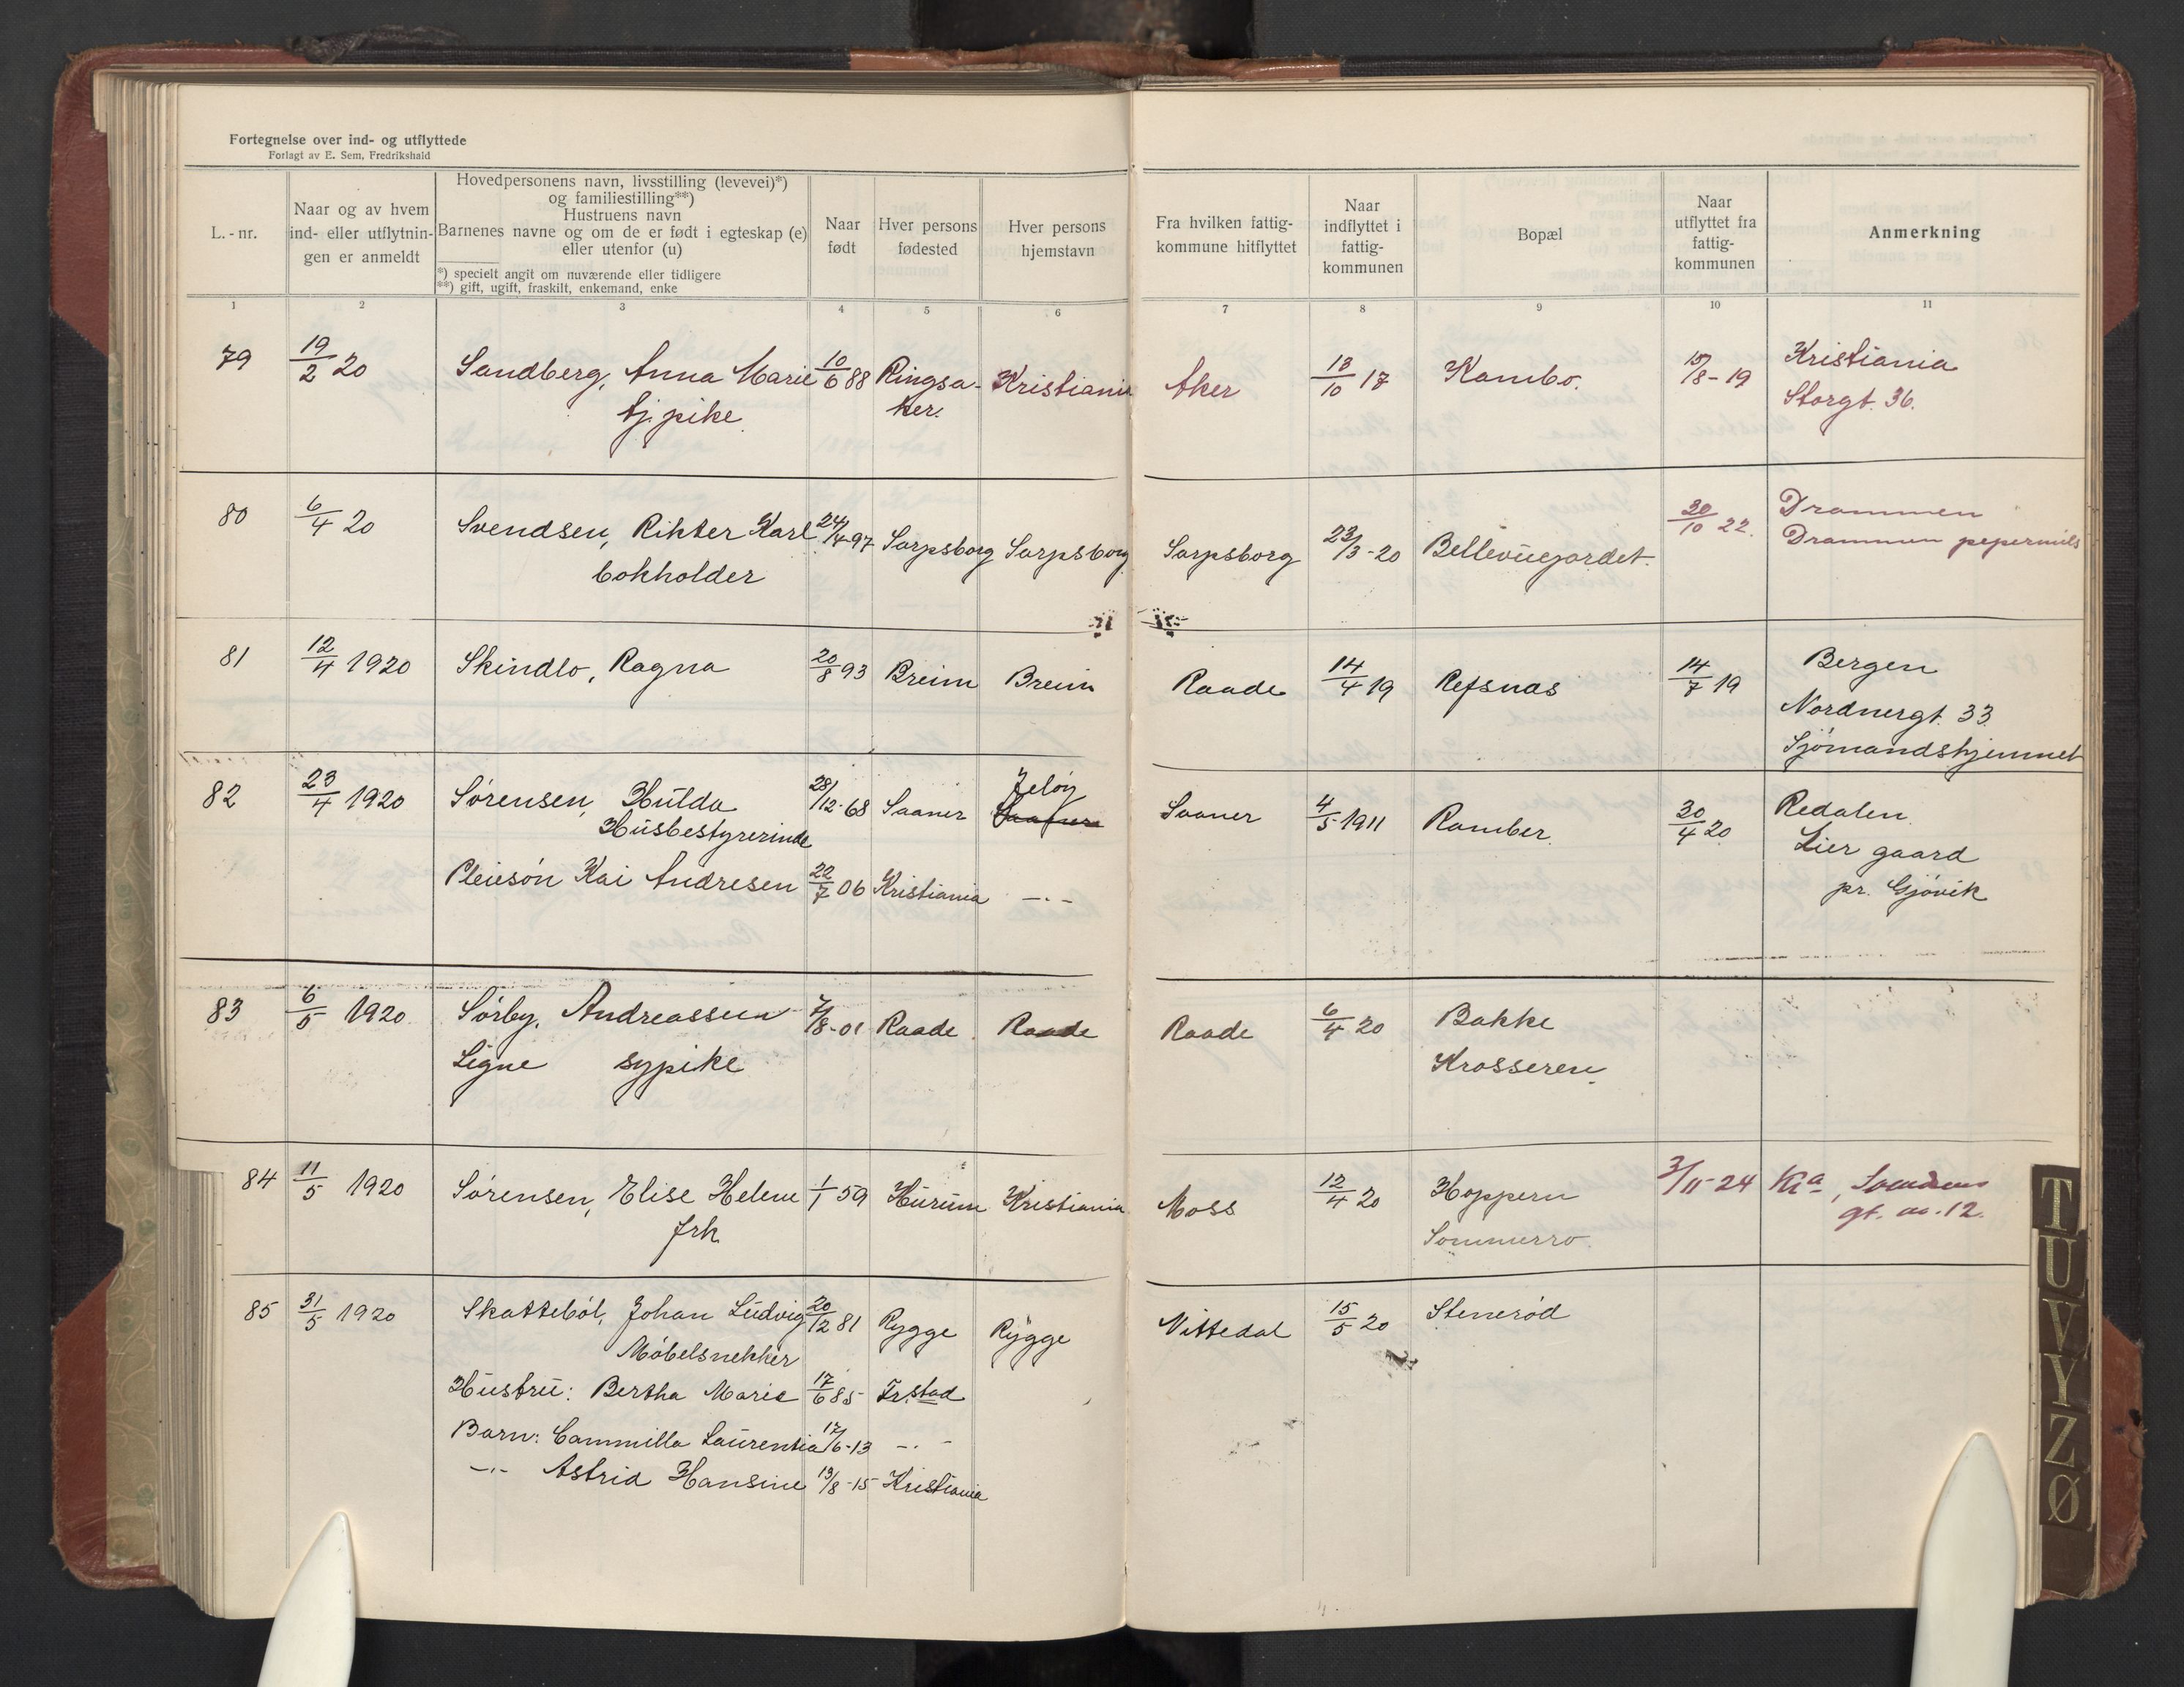 Fortegnelse over ind- og utflyttede
Forlagt av E. Sem, Fredrikshald
L.-nr.
Naar og av hvem
ind- eller utflytnin-
gen er anmeldt
Hovedpersonens navn, livsstilling (levevei)*)
og familiestilling**)
Hustruens navn
Barnenes navne og om de er født i egteskap (e)
eller utenfor (u)
*) specielt angit om nuværende eller tidligere
**) gift, ugift, fraskilt, enkemand, enke
Naar
født
Hver persons
fødested
Hver persons
hjemstavn
Fra hvilken fattig-
kommune hitflyttet
Naar
indflyttet i
fattig-
kommunen
Bopæl
Naar
utflyttet fra
fattig-
kommunen
Anmerkning
1 2 3 4 5 6 7 8 9 10 11
79 19/2 20 Sandberg, Anna Marie 10/6 88 Ringsa- Kristiania Aker 13/10 17 Kambo. 15/8-19 Kristiania
tj. pike ker. Storgt. 36.
80 6/4 20 Svendsen, Rikter Karl 24/4-97 Sarpsborg Sarpsborg Sarpsborg 23/3-20 Bellevuejordet. 30/10 22. Drammen
bokholder Drammen
81 12/4 1920 Skindlo, Ragna 20/8 93 Breim Breim Raade 14/4 19 Refsnas 14/7 19 Bergen
Nordnergt. 33
Sjömandshjemmet
82 23/4 1920 Sörensen, Hulda 28/12-68 Saaner Jeløy Saaner 4/5 1911 Ramber. 30/4 20 Redalen
Husbestyrerinde Lier gaard
Pleiesön Kai Andresen 22/7 06 Kristiania -"- pr. Gjövik
83 6/5 1920 Sörby, Andreassen 7/8-01 Raade Raade Raade 6/4 20 Bakke
Signe sypike Krosseren
84 11/5 1920 Sörensen, Elise Helene 1/1 59 Hurum Kristiania Moss 12/4 20 Hoppern 3/11-24 Kra,
frk Sommerro gt. no. 12.
85 31/5 1920 Skatteböl, Johan Ludvig 20/12 81 Rygge Rygge Nittedal 15/5 20 Stenerød
Möbelsnekker
Hustru: Bertha Marie 17/6 85 Fr.stad
Barn: Cammilla Laurentia 17/6-13 -"-
-"- Astrid Hansine 13/8-15 Kristiania
T
U
V
Y
Z
Ø